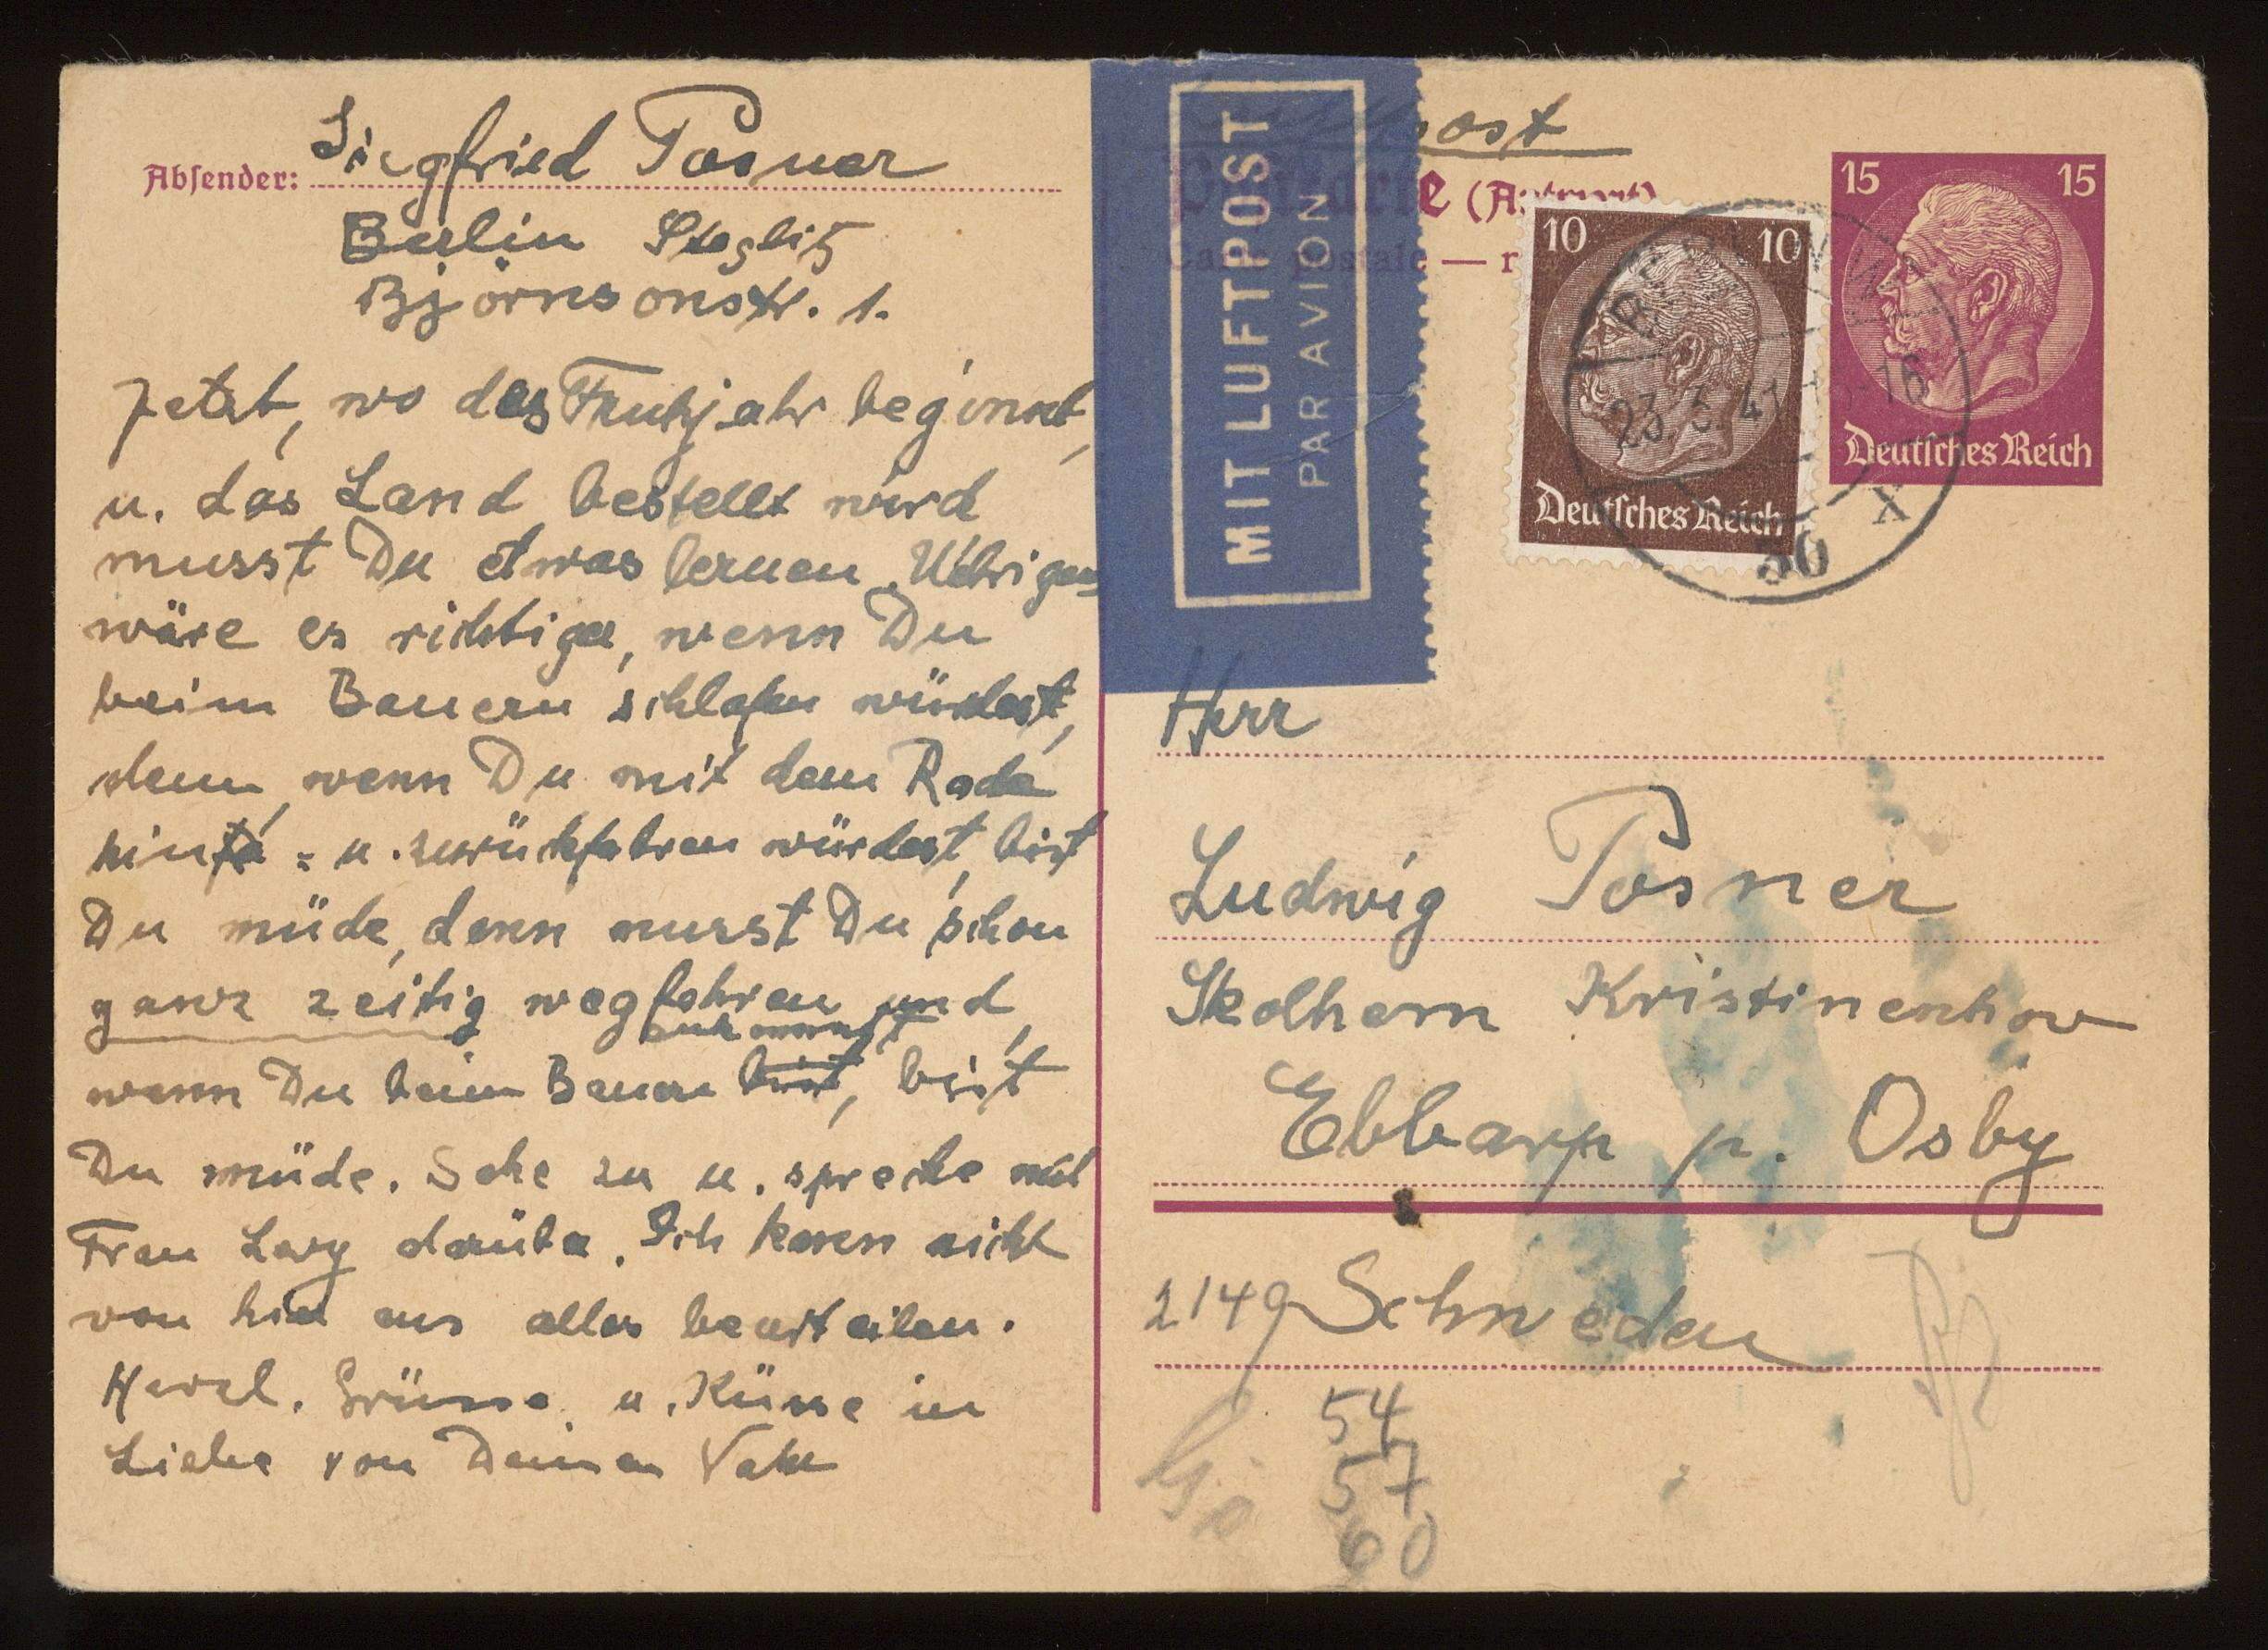 Absender: Siegfried Posner
Berlin Steglitz
Björnsonstr. 1.
Jetzt, wo das Fruhjahr beginnt,
u. das Land bestellt wird
musst Du etwas lernen. Uebrigens
wäre es richtiger, wenn Du
beim Bauern schlafen würdest,
denn, wenn Du mit dem Rade
hin - u. zurückfahren würdest, bist
Du müde, denn musst Du schon
ganz zeitig wegfahren und,
ankommst
wenn Du beim Bauern bist, bist
Du müde. Sehe zu u. spreche mit
Frau Levy darüber. Ich kann nicht
von hier aus alles beurteilen.
Herzl. Grüsse u. Küsse in
Liebe von Deinem Vater
MIT LUFTPOST
PAR AVION
Luftpost
Postkarte (Antwort)
Carte postale — r
10 10
Deutsches Reich
15 15
Deutsches Reich
BERLIN
23.3.41 - 16
56 X
Herr
Ludwig Posner
Skolhem Kristinenhov
Ebbarp p. Osby
2149 Schweden
54
57
60